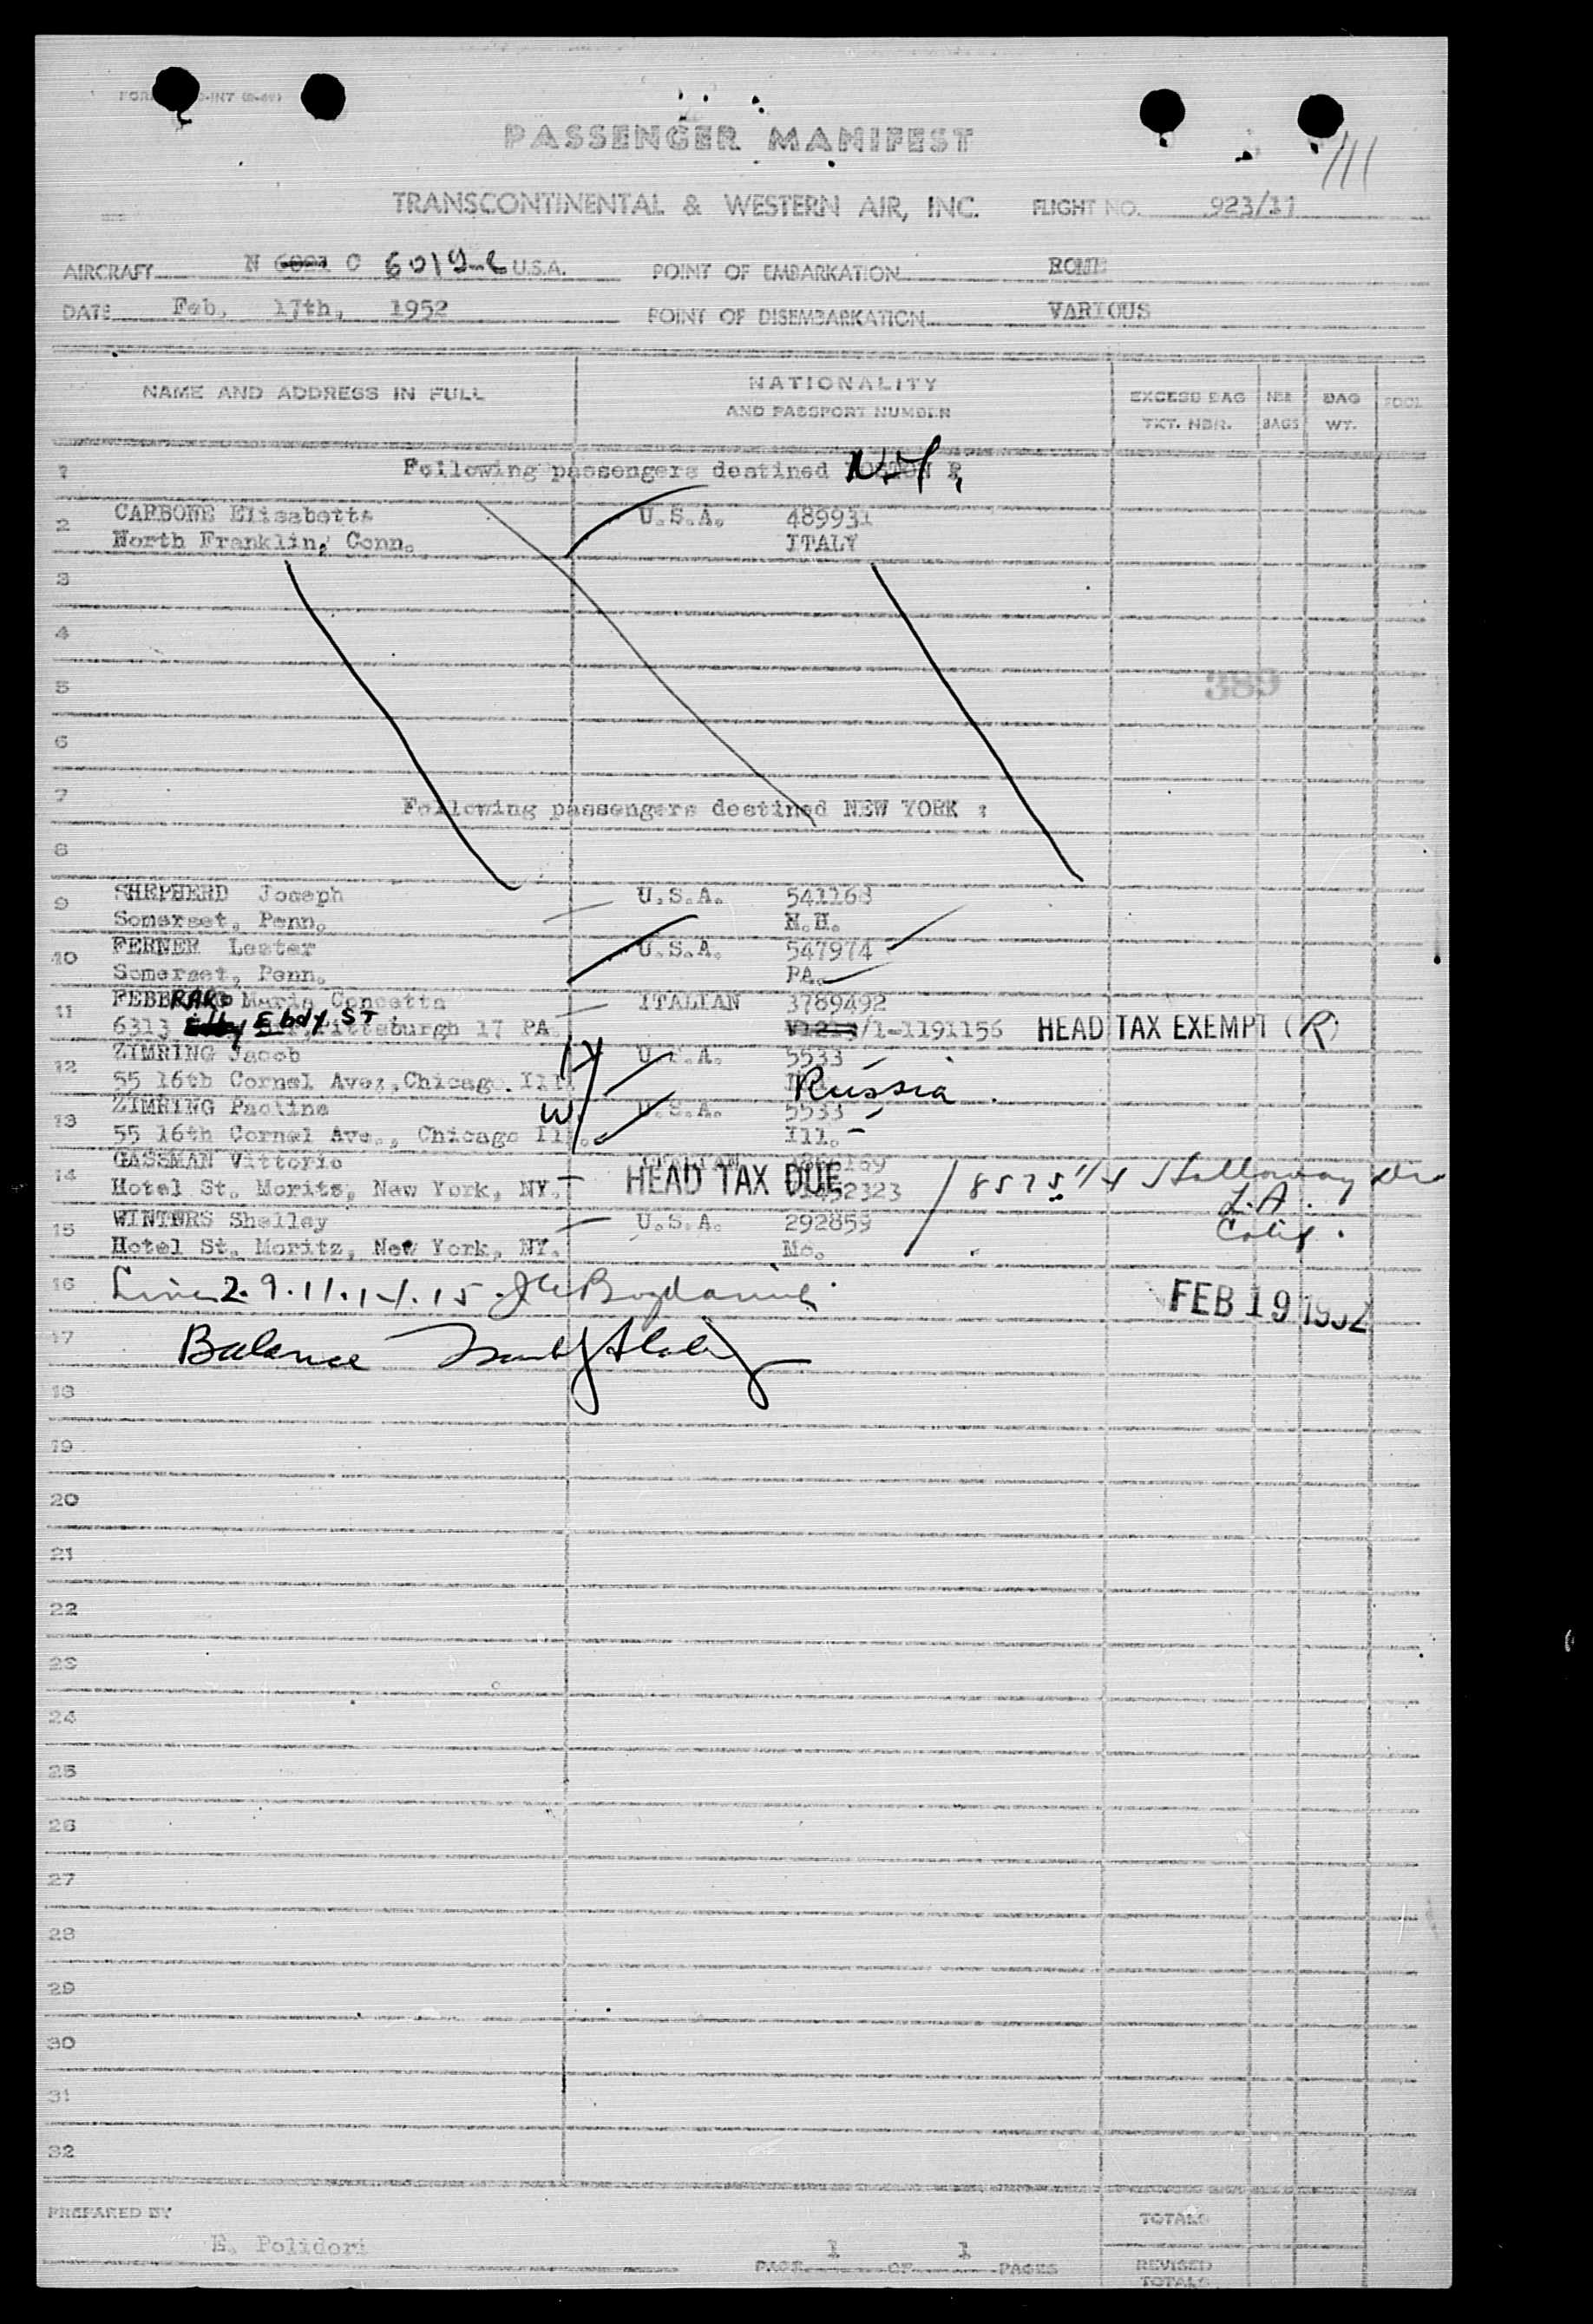 PASSENGER MANIFEST
111
TRANSCONTINENTAL & WESTERN AIR, INC. FLIGHT NO. 923/11
AIRCRAFT N C 6019-C U.S.A. POINT OF EMBARKATION ROME
DATE Feb. 17th, 1952 POINT OF DISEMBARKATION VARIOUS
NAME AND ADDRESS IN FULL NATIONALITY AND PASSPORT NUMBER EXCESS BAG TKT. NBR. NBR BAGS BAG WT.
1 Following passengers destined N.Y.
2 CARBONE Elisabetta U.S.A. 489931
North Franklin, Conn. ITALY
3
4
5 389
6
7 Following passengers destined NEW YORK :
8
9 SHEPHERD Joseph U.S.A. 541168
Somerset, Penn. N.H.
10 FERNER Lester U.S.A. 547974
Somerset, Penn. PA.
11 Maria Concetta ITALIAN 3789492
6313 Ebdy ST Pittsburgh 17 PA. /1-1191156 HEAD TAX EXEMPT (R)
12 ZIMRING Jacob U.S.A. 5533
55 16th Cornel Ave., Chicago. Ill. Russia
13 ZIMRING Paolina W U.S.A. 5533
55 16th Cornel Ave., Chicago Ill. Ill.
14 GASSMAN Vittorio ITALIAN
Hotel St. Moritz, New York, NY. HEAD TAX DUE 8575 1/4 Holloway Dr
L.A.
15 WINTERS Shelley U.S.A. 292859 Calif.
Hotel St. Moritz, New York, NY. Mo.
16 Line 2. 9. 11. 14. 15. FEB 19 1952
17 Balance
18
19
20
21
22
23
24
25
26
27
28
29
30
31
32
PREPARED BY TOTALS
E. Polidori PAGE 1 OF 1 PAGES REVISED TOTALS